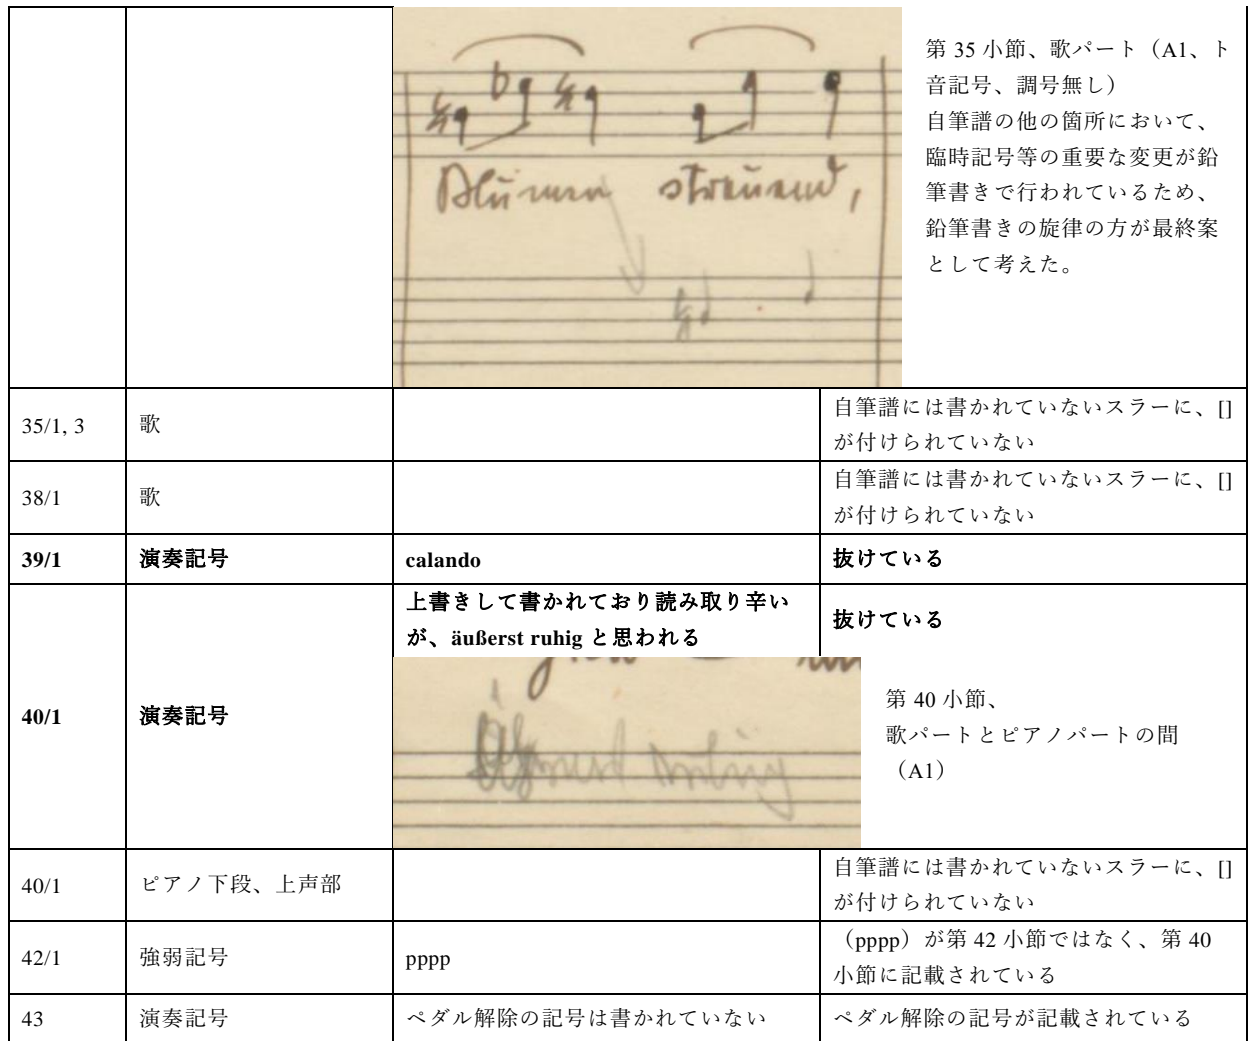 第 35 小節、歌パート（A1、ト
音記号、調号無し）
自筆譜の他の箇所において、
臨時記号等の重要な変更が鉛
筆書きで行われているため、
鉛筆書きの旋律の方が最終案
として考えた。
Blumen streuend,
35/1, 3
歌
自筆譜には書かれていないスラーに、[]
が付けられていない
38/1
歌
自筆譜には書かれていないスラーに、[]
が付けられていない
39/1
演奏記号
calando
抜けている
40/1
演奏記号
上書きして書かれており読み取り辛い
が、äußerst ruhig と思われる
抜けている
第 40 小節、
歌パートとピアノパートの間
（A1）
40/1
ピアノ下段、上声部
自筆譜には書かれていないスラーに、[]
が付けられていない
42/1
強弱記号
pppp
（pppp）が第 42 小節ではなく、第 40
小節に記載されている
43
演奏記号
ペダル解除の記号は書かれていない
ペダル解除の記号が記載されている